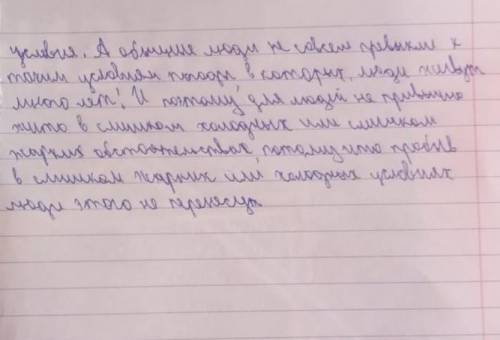 условия. А обычные люди не совсем превыкли к
таким условиям погоды в которых, люди живут
много лет! И поэтому для людей не привычно
жить в слишком холодных или слишком
жарких обстоятельствах, потому что пробыв
в слишком жарких или холодных условиях
люди этого не перенесут.